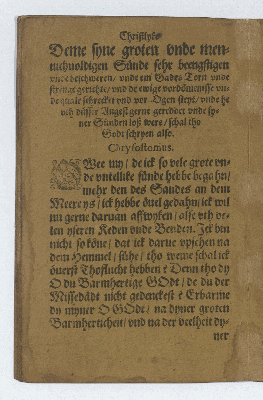 Christlyke
Deme syne groten vnde men-
nichuoldigen Sünde sehr beengstigen
vnde beschweren, vnde em Gades Torn vnde
strenge gerichte, vnde de ewige vordömenisse vn-
de quale schrecket vnd vor Ogen steyt, vnde he
vth disser Angest gerne gereddet vnde sy-
ner Sünden loß were, schal tho
Godt schryen also.
Chrysostomus.
WEe my, de ick so vele grote vn-
de vntellike sünde hebbe begahn,
mehr den des Sandes an dem
Meere ys, ick hebbe öuel gedahn, ick wil
nu gerne daruan affwyken, alse vth ve-
len yseren Keden vnde Benden. Ick bin
nicht so köne, dat ick darue vpsehen na
dem Hemmel, sühe, tho weme schal ick
öuerst Thoflucht hebben? Denn tho dy
O du Barmhertige GOdt, de du der
Missedådt nicht gedenckest: Erbarme
dy myner O GOdt, na dyner groten
Barmherticheit, vnd na der veelheit dy-
ner